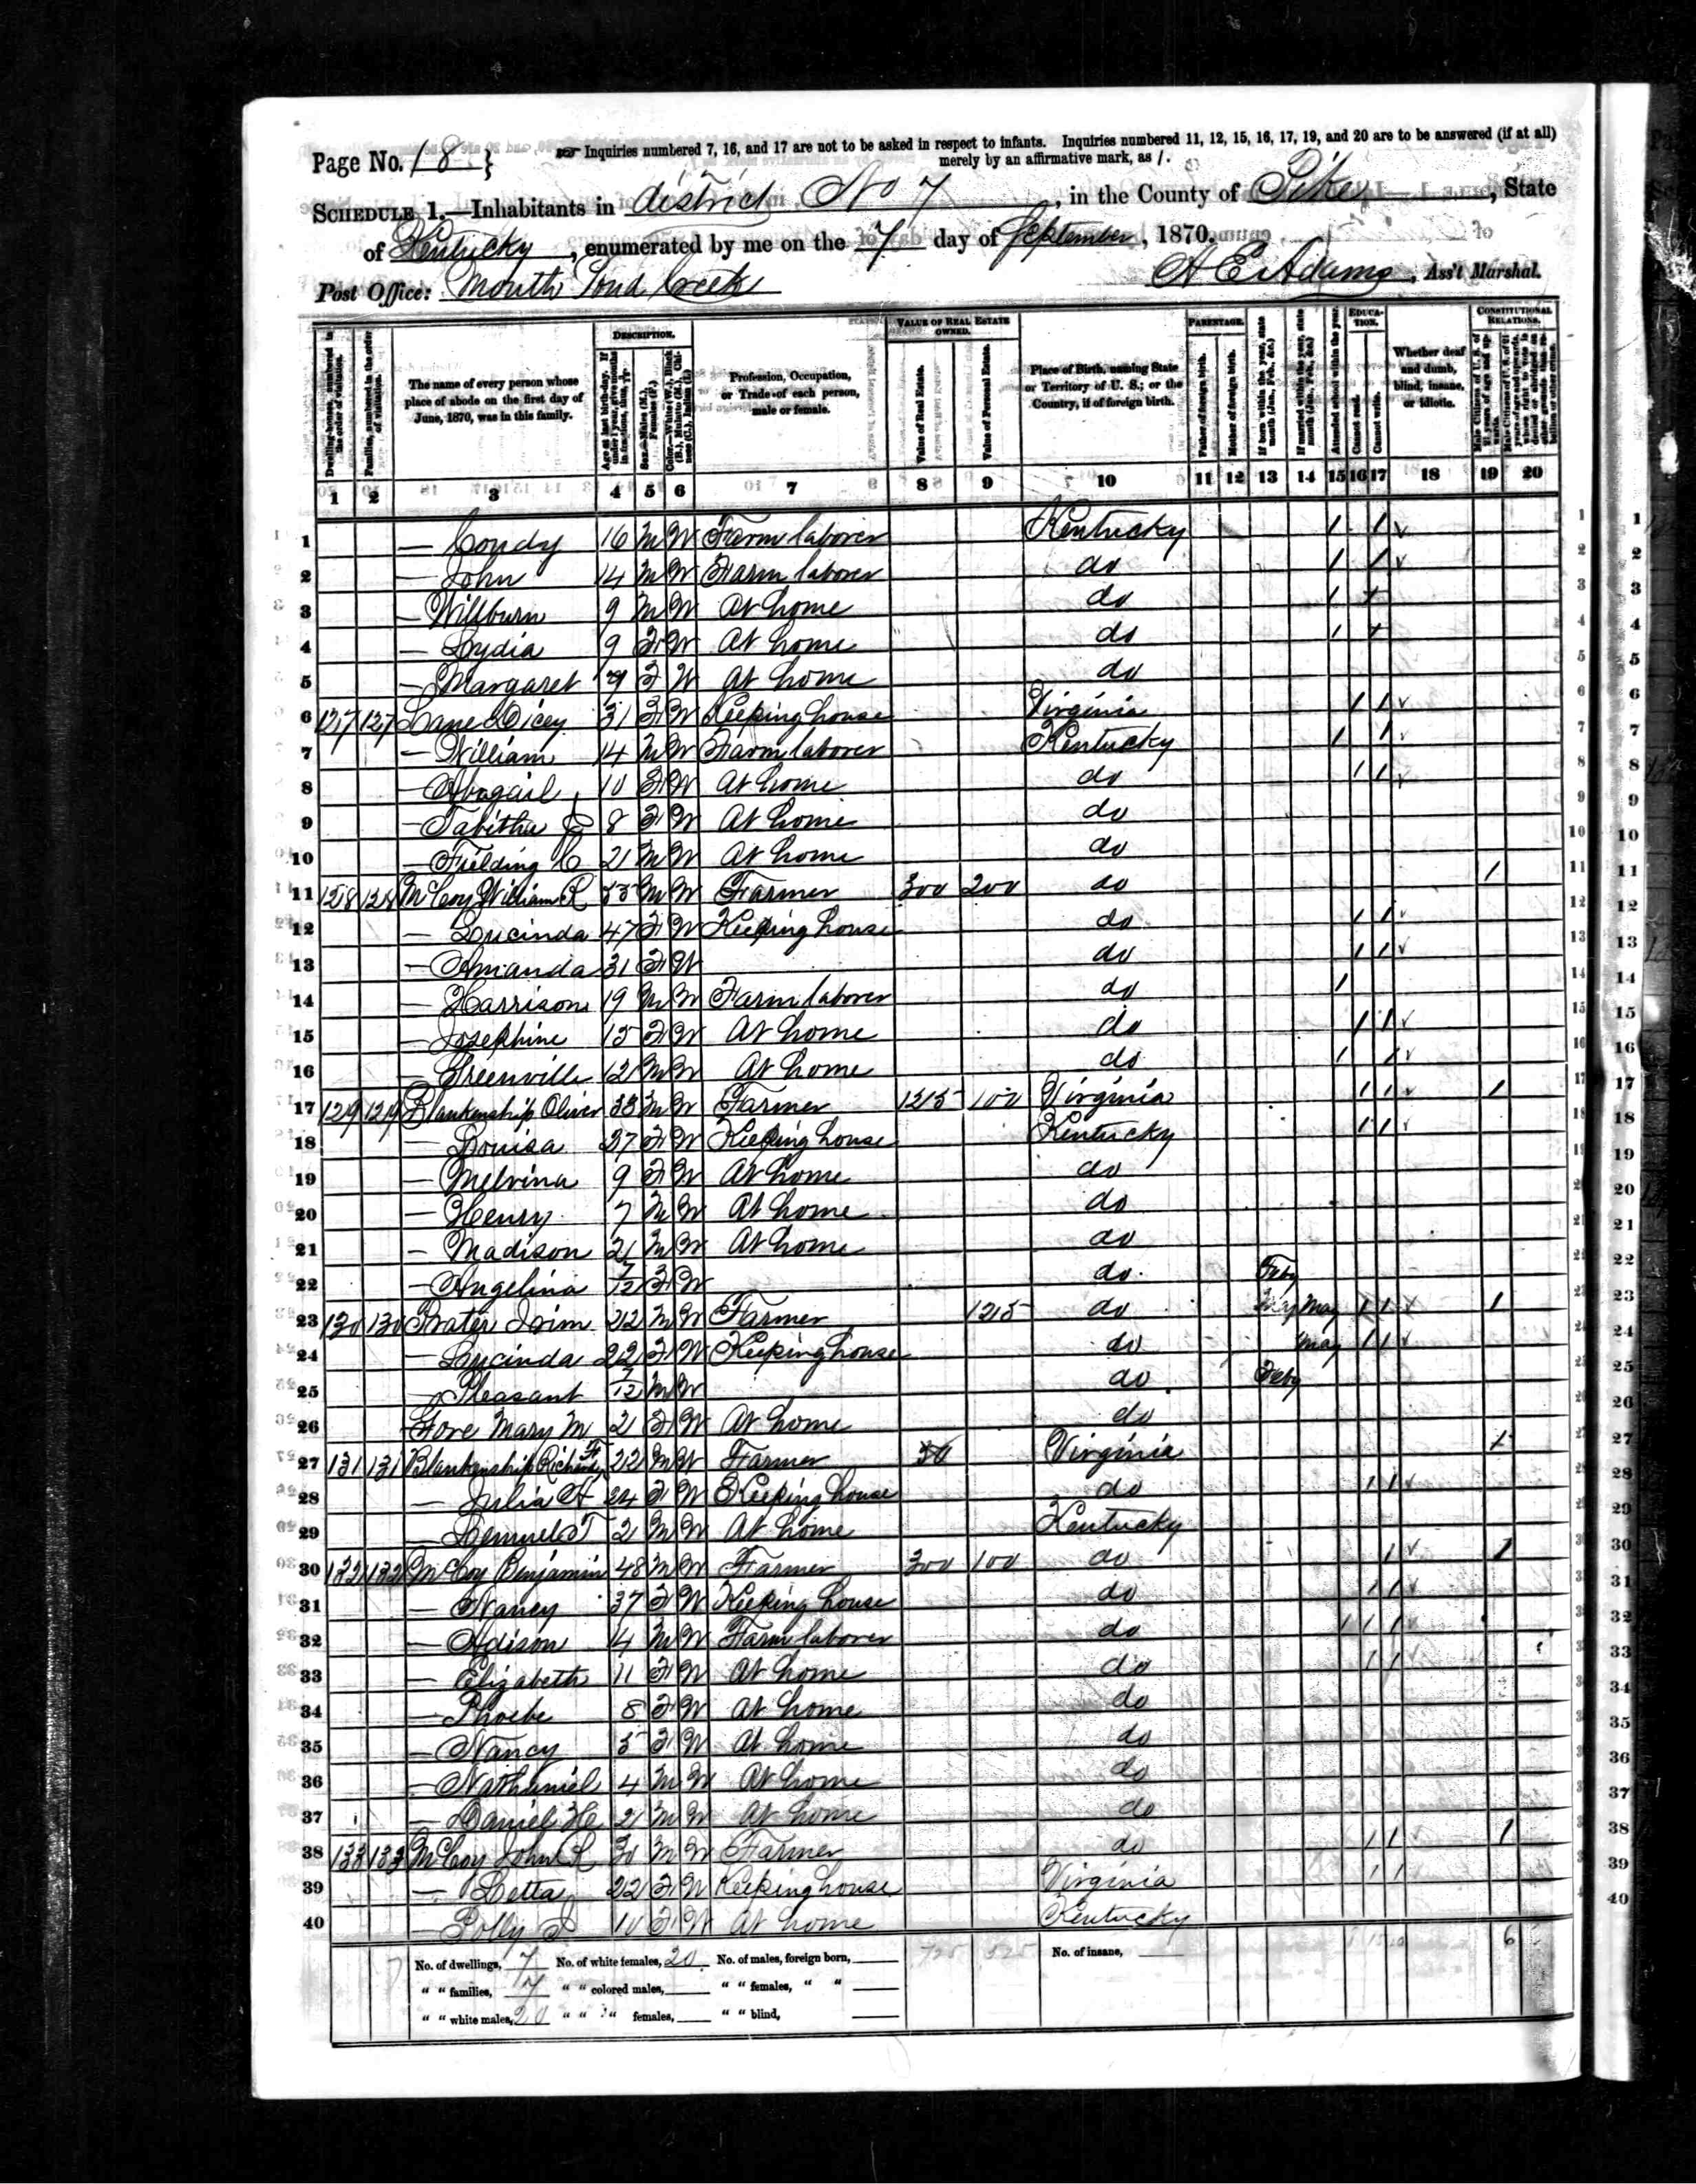 Page No. 18 } Inquiries numbered 7, 16, and 17 are not to be asked in respect to infants. Inquiries numbered 11, 12, 15, 16, 17, 19, and 20 are to be answered (if at all)
merely by an affirmative mark, as /.
SCHEDULE 1.—Inhabitants in district No 7, in the County of Pike, State
of Kentucky, enumerated by me on the 7 day of September, 1870.
Post Office: Mouth Pond Creek A E Adams, Ass't Marshal.
DESCRIPTION. VALUE OF REAL ESTATE OWNED. PARENTAGE. EDUCATION. CONSTITUTIONAL RELATIONS.
Dwelling-houses, numbered in the order of visitation.
Families, numbered in the order of visitation.
The name of every person whose place of abode on the first day of June, 1870, was in this family.
Profession, Occupation, or Trade of each person, male or female.
Value of Real Estate.
Value of Personal Estate.
Place of Birth, naming State or Territory of U. S.; or the Country, if of foreign birth.
Father of foreign birth.
Mother of foreign birth.
Attended school within the year.
Cannot read.
Cannot write.
Whether deaf and dumb, blind, insane, or idiotic.
1 2 3 4 5 6 7 8 9 10 11 12 13 14 15 16 17 18 19 20
1 — Condy 16 M W Farm laborer Kentucky / /
2 — John 14 M W Farm laborer do / /
3 — Willburn 9 M W At home do /
4 — Lydia 9 F W At home do /
5 — Margaret 7 F W At home do
6 127 127 Lane Dicey 31 F W Keeping house Virginia / /
7 — William 14 M W Farm laborer Kentucky / /
8 — Abagail 10 F W At home do / /
9 — Tabitha 8 F W At home do
10 — Fielding C 2 M W At home do
11 128 128 McCoy William R M W Farmer 300 200 do /
12 — Lucinda 47 F W Keeping house do / /
13 — Amanda 31 F W do / /
14 — Harrison 19 M W Farm laborer do /
15 — Josephine 15 F W At home do / /
16 — Greenville 12 M W At home do / /
17 129 129 Blankenship Oliver 33 M W Farmer 125 100 Virginia / / /
18 — Louisa 27 F W Keeping house Kentucky / /
19 — Melvina 9 F W At home do
20 — Henry 7 M W At home do
21 — Madison 2 M W At home do
22 — Angelina 7/12 F W do Feby
23 130 130 Prater 22 M W Farmer 125 do May / / /
24 — Lucinda 22 F W Keeping house do May / /
25 — Pleasant 7/12 M W do Feby
26 Fore Mary M 2 F W At home do
27 131 131 Blankenship Richard 22 M W Farmer Virginia /
28 — Julia A 24 F W Keeping house do / /
29 — Lemuel T 2 M W At home Kentucky
30 132 132 McCoy Benjamin 48 M W Farmer 300 100 do / /
31 — Nancy 37 F W Keeping house do / /
32 — Adison 14 M W Farm laborer do / / /
33 — Elizabeth 11 F W At home do / /
34 — Phoebe 8 F W At home do
35 — Nancy 5 F W At home do
36 — Nathaniel 4 M W At home do
37 — Daniel H 2 M W At home do
38 133 133 McCoy John R 30 M W Farmer do / / /
39 — Letta 22 F W Keeping house Virginia / /
40 — Polly 10 F W At home Kentucky
No. of dwellings, 7 No. of white females, 20 No. of males, foreign born, 725 525 No. of insane, 6
" " families, 7 " " colored males, " " females, " "
" " white males, 20 " " " females, " " blind,